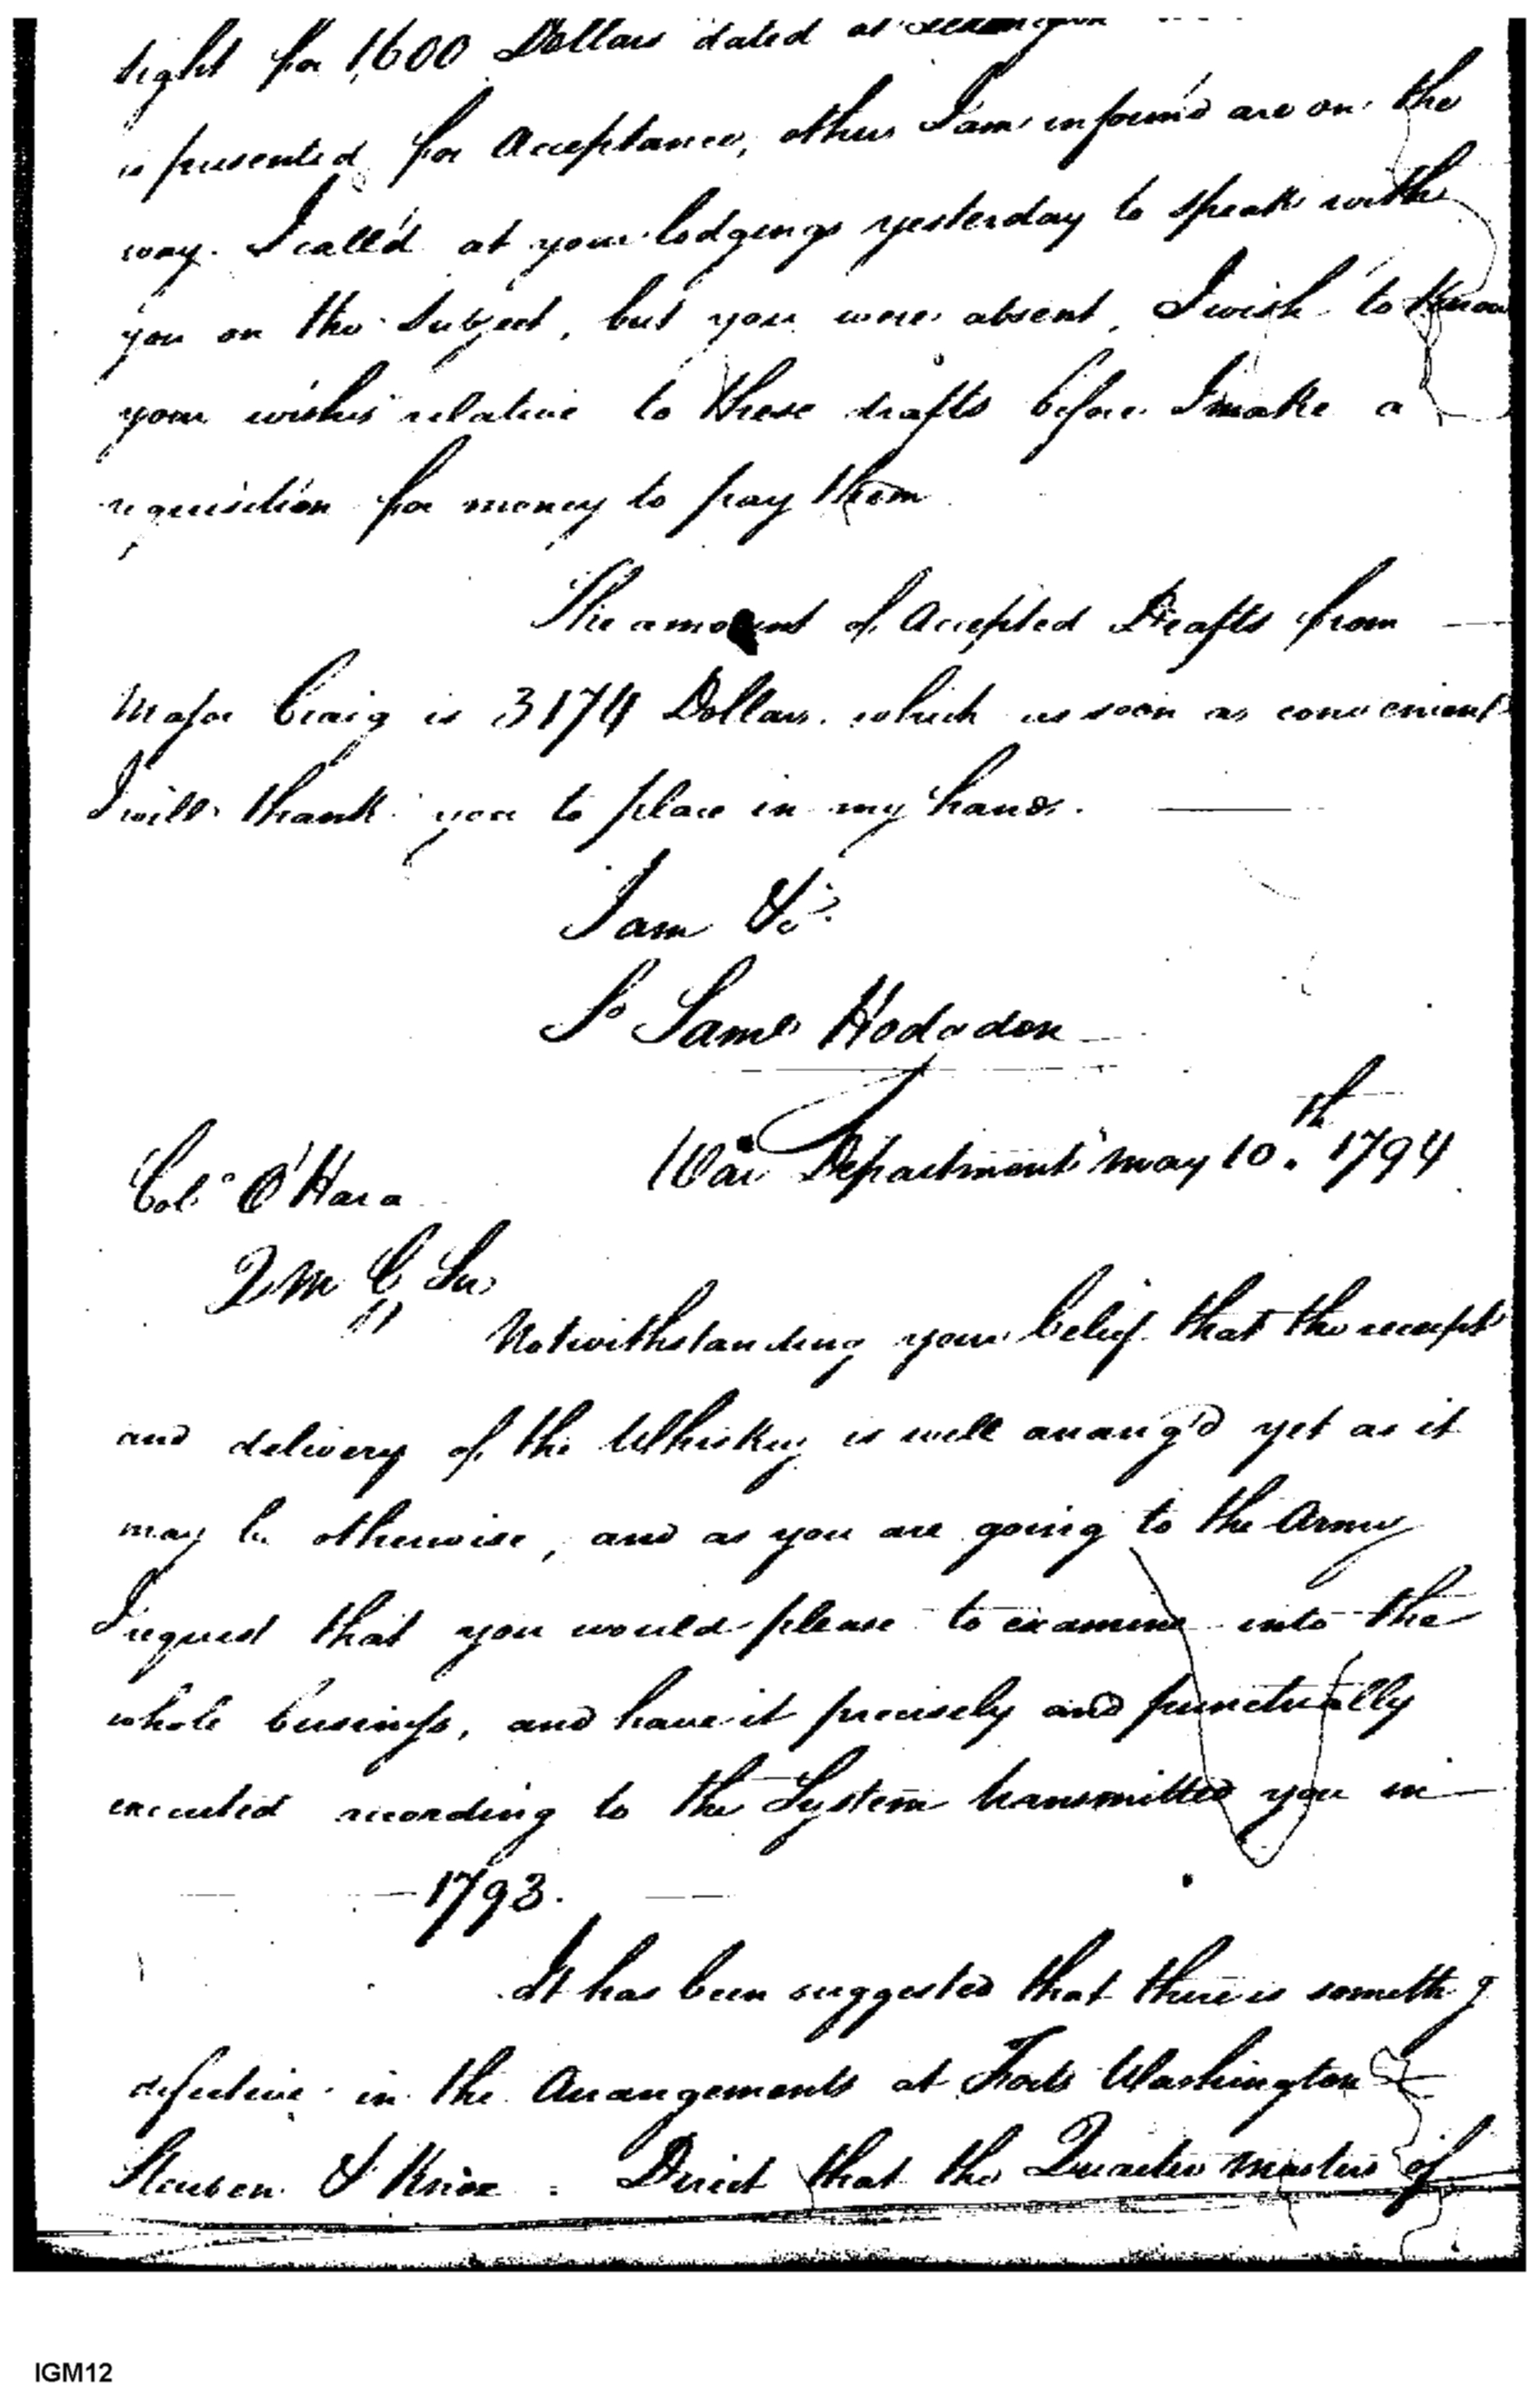 sight for 1600 Dollars dated at
is presented for Acceptance, others I am inform'd are on the
way. I call'd at your lodgings yesterday to speak with
you on the Subject, but you were absent, I wish to know
your wishes relative to these drafts before I make a
requisition for money to pay them
The amount of Accepted Drafts from
Major Craig is 3174 Dollars. which as soon as convenient
I will thank you to place in my hands.
I am &c.
So Saml Hodgdon
War Department May 10.th 1794
Col.o O'Hara
Q M G Sir
Notwithstanding your belief that the receipt
and delivery of the Whiskey is well arrang'd yet as it
may be otherwise, and as you are going to the Army
I request that you would please to examine into the
whole business, and have it precisely and punctually
executed according to the System transmitted you in
1793.
It has been suggested that there is someth g
defective in the Arrangements at Forts Washington
Steuben & Knox. Direct that the Quarter Masters of
IGM12